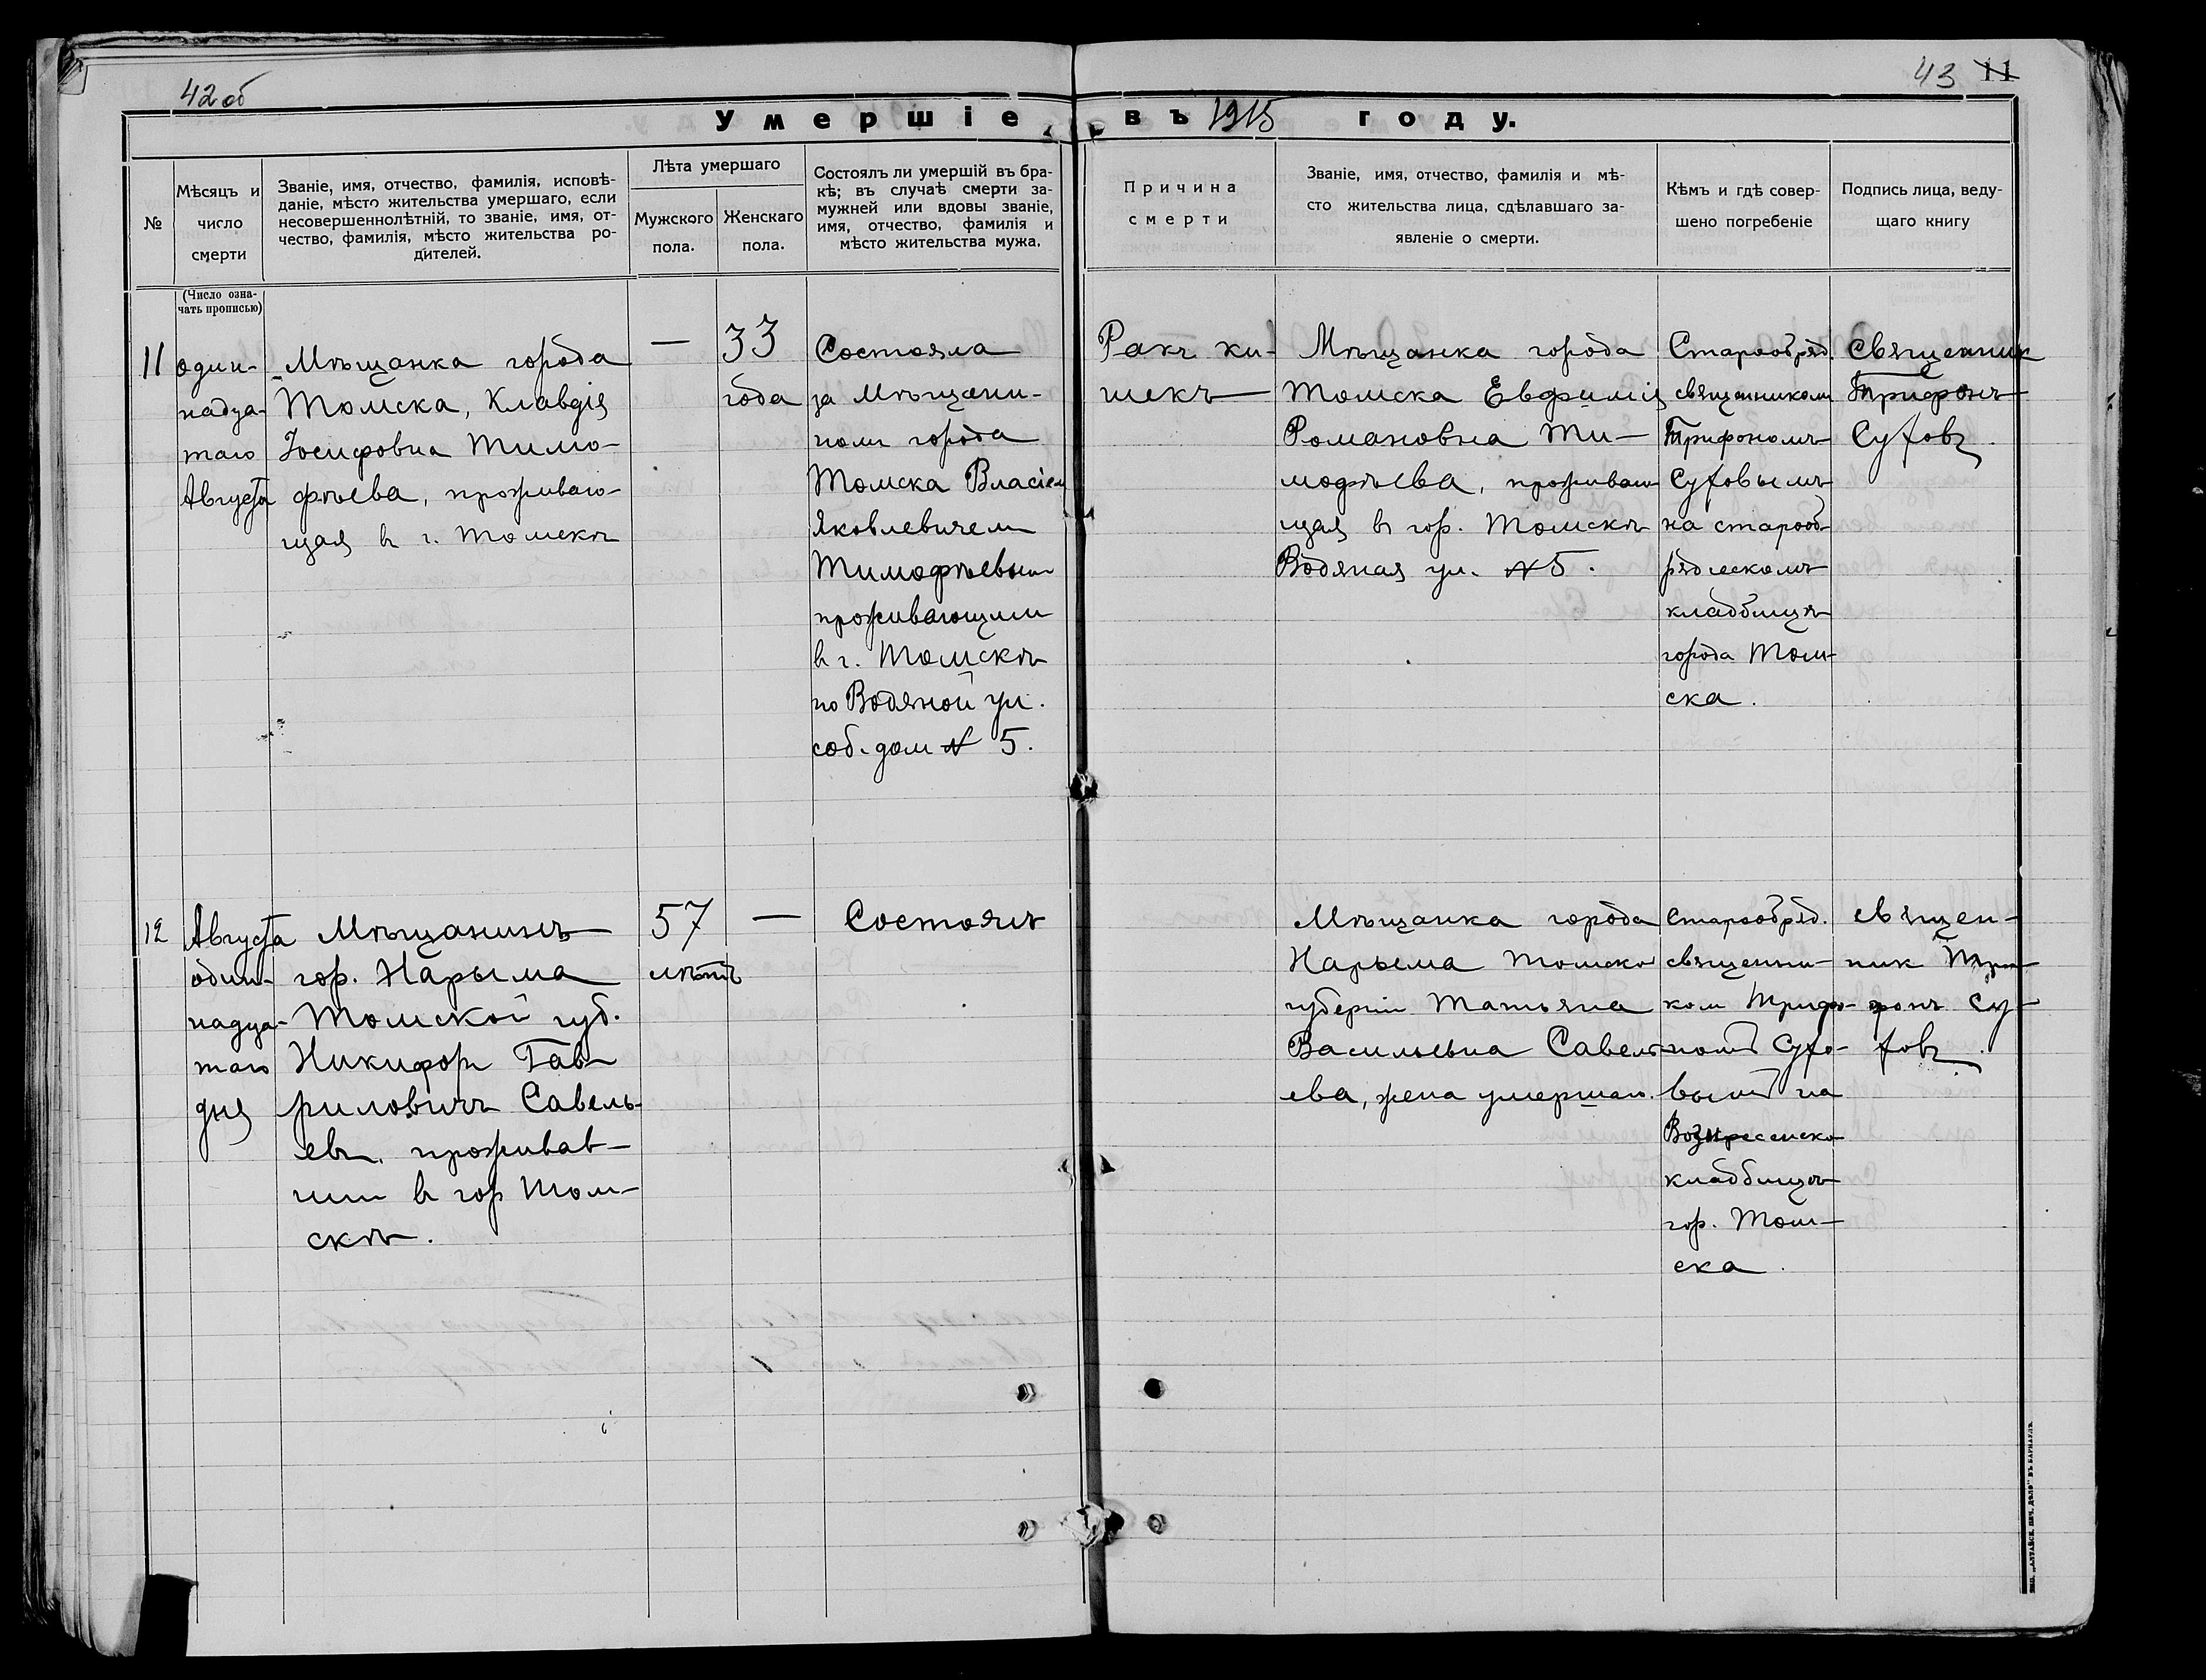 42 об
43 11
Умершіе въ 1915 году.
№
Мѣсяцъ и
число
смерти
Званіе, имя, отчество, фамилія, исповѣ-
даніе, мѣсто жительства умершаго, если
несовершеннолѣтній, то званіе, имя, от-
чество, фамилія, мѣсто жительства ро-
дителей.
Лѣта умершаго
Мужского
пола.
Женскаго
пола.
Состоялъ ли умершій въ бра-
кѣ; въ случаѣ смерти за-
мужней или вдовы званіе,
имя, отчество, фамилія и
мѣсто жительства мужа.
Причина
смерти
Званіе, имя, отчество, фамилія и мѣ-
сто жительства лица, сдѣлавшаго за-
явленіе о смерти.
Кѣмъ и гдѣ совер-
шено погребеніе
Подпись лица, веду-
щаго книгу
(Число озна-
чать прописью)
11
один-
надца-
таго
Августа
Мѣщанка города
Томска, Клавдія
Іосифовна Тимо-
фѣева, проживаю-
щая въ г. Томскѣ
—
33
года
Состояла
за Мѣщани-
номъ города
Томска Власіем
Яковлевичем
Тимофѣевым
проживающим
въ г. Томскѣ
по Водяной ул.
соб. дом № 5.
Ракъ ки-
шекъ
Мѣщанка города
Томска Евфимія
Романовна Ти-
мофѣева, проживаю
щая въ гор. Томскѣ
Водяная ул. № 5.
Старообряд.
священником
Трифономъ
Суховымъ
на старооб-
рядческомъ
кладбищѣ
города Том-
ска.
Священник
Трифонъ
Суховъ.
12
Августа
один-
надца-
таго
дня
Мѣщанинъ
гор. Нарыма
Томской губ.
Никифоръ Гав-
риловичъ Савель-
евъ, проживав-
шій въ гор Том-
скѣ.
57
лѣтъ
—
Состоялъ
Мѣщанка города
Нарыма Томской
губерніи Татьяна
Васильевна Савель-
ева, жена умершаго.
Старообряд.
священни-
ком Трифо-
номъ Сухо-
вымъ на
Вознесенско
кладбищѣ
гор. Том-
ска.
Священ-
ник Три-
фонъ Су-
ховъ.
Тип. „Алтайск. печ. дѣло" въ Барнаулѣ